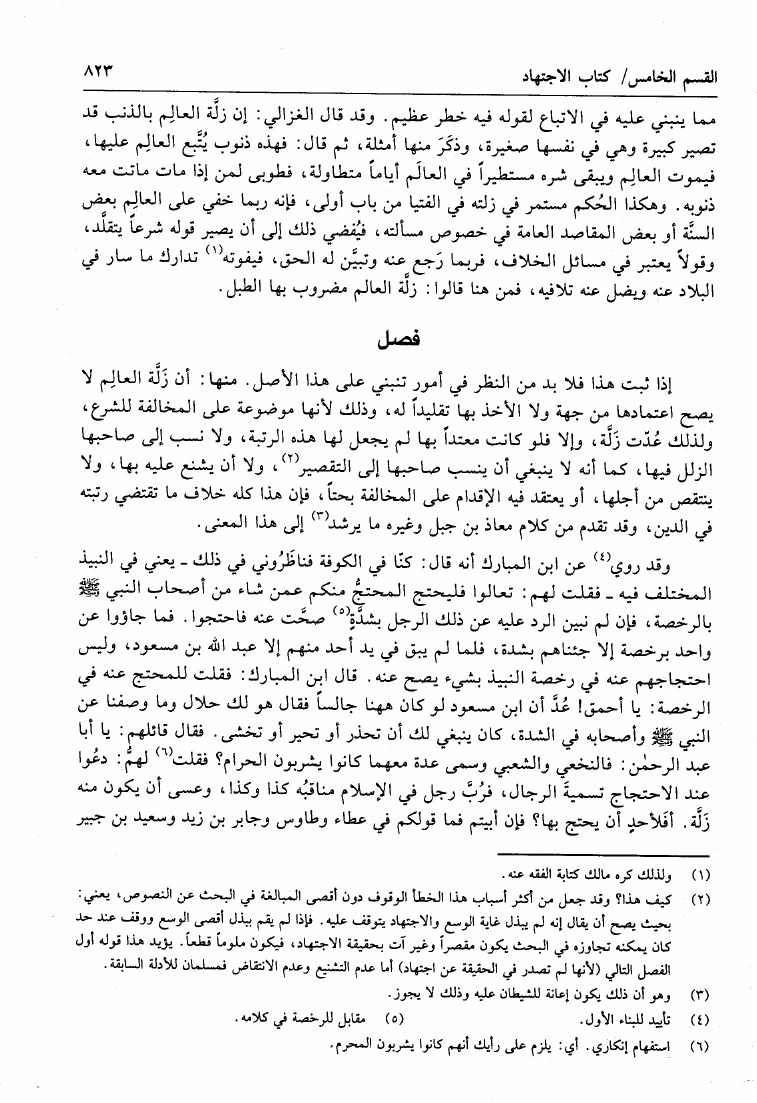 القسم الخامس/ كتاب الاجتهاد ٨٢٣
مما ينبني عليه في الاتباع لقوله فيه خطر عظيم. وقد قال الغزالي: إن زلَّة العالِم بالذنب قد
تصير كبيرة وهي في نفسها صغيرة، وذكَرَ منها أمثلة، ثم قال: فهذه ذنوب يُتَّبع العالِم عليها،
فيموت العالِم ويبقى شره مستطيراً في العالَم أياماً متطاولة، فطوبى لمن إذا مات ماتت معه
ذنوبه. وهكذا الحُكم مستمر في زلته في الفتيا من باب أولى، فإنه ربما خفي على العالِم بعض
السنَّة أو بعض المقاصد العامة في خصوص مسألته، فيُفضي ذلك إلى أن يصير قوله شرعاً يتقلَّد،
وقولاً يعتبر في مسائل الخلاف، فربما رَجع عنه وتبيَّن له الحق، فيفوته(١) تدارك ما سار في
البلاد عنه ويضل عنه تلافيه، فمن هنا قالوا: زلَّة العالم مضروب بها الطبل.
فصل
إذا ثبت هذا فلا بد من النظر في أمور تنبني على هذا الأصل. منها: أن زَلَّة العالِم لا
يصح اعتمادها من جهة ولا الأخذ بها تقليداً له، وذلك لأنها موضوعة على المخالفة للشرع،
ولذلك عُدّت زلَّة، وإلا فلو كانت معتداً بها لم يجعل لها هذه الرتبة، ولا نسب إلى صاحبها
الزلل فيها، كما أنه لا ينبغي أن ينسب صاحبها إلى التقصير(٢)، ولا أن يشنع عليه بها، ولا
ينتقص من أجلها، أو يعتقد فيه الإقدام على المخالفة بحتاً، فإن هذا كله خلاف ما تقتضي رتبته
في الدين، وقد تقدم من كلام معاذ بن جبل وغيره ما يرشد(٣) إلى هذا المعنى.
وقد روي(٤) عن ابن المبارك أنه قال: كنَّا في الكوفة فناظَرُوني في ذلك ـ يعني في النبيذ
المختلف فيه ـ فقلت لهم: تعالوا فليحتج المحتجُّ منكم عمن شاء من أصحاب النبي ﷺ
بالرخصة، فإن لم نبين الرد عليه عن ذلك الرجل بشدَّةٍ(٥) صحَّت عنه فاحتجوا. فما جاؤوا عن
واحد برخصة إلا جئناهم بشدة، فلما لم يبق في يد أحد منهم إلا عبد الله بن مسعود، وليس
احتجاجهم عنه في رخصة النبيذ بشيء يصح عنه. قال ابن المبارك: فقلت للمحتج عنه في
الرخصة: يا أحمق! عُدَّ أن ابن مسعود لو كان ههنا جالساً فقال هو لك حلال وما وصفنا عن
النبي ﷺ وأصحابه في الشدة، كان ينبغي لك أن تحذر أو تحير أو تخشى. فقال قائلهم: يا أبا
عبد الرحمٰن: فالنخعي والشعبي وسمى عدة معهما كانوا يشربون الحرام؟ فقلت(٦) لهمُ: دعُوا
عند الاحتجاج تسميةَ الرجال، فرُبَّ رجل في الإسلام مناقبُه كذا وكذا، وعسى أن يكون منه
زلَّة. أفَلأحدٍ أن يحتج بها؟ فإن أبيتم فما قولكم في عطاء وطاوس وجابر بن زيد وسعيد بن جبير
(١) ولذلك كره مالك كتابة الفقه عنه.
(٢) كيف هذا؟ وقد جعل من أكثر أسباب هذا الخطأ الوقوف دون أقصى المبالغة في البحث عن النصوص، يعني:
بحيث يصح أن يقال إنه لم يبذل غاية الوسع والاجتهاد يتوقف عليه. فإذا لم يقم ببذل أقصى الوسع ووقف عند حد
كان يمكنه تجاوزه في البحث يكون مقصراً وغير آت بحقيقة الاجتهاد، فيكون ملوماً قطعاً. يؤيد هذا قوله أول
الفصل التالي (لأنها لم تصدر في الحقيقة عن اجتهاد) أما عدم التشنيع وعدم الانتقاض فمسلمان للأدلة السابقة.
(٣) وهو أن ذلك يكون إعانة للشيطان عليه وذلك لا يجوز.
(٤) تأييد للبناء الأول. (٥) مقابل للرخصة في كلامه.
(٦) استفهام إنكاري. أي: يلزم على رأيك أنهم كانوا يشربون المحرم.